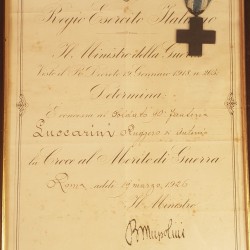 Regio Esercito Italiano
Il Ministro della Guerra
Visto il R. Decreto 19 Gennaio 1918, n. 205
Determina:
È concessa al Soldato
Luccarini Ruggero di Antonio
la Croce al Merito di Guerra
Roma addì 19 marzo, 1924
Il Ministro